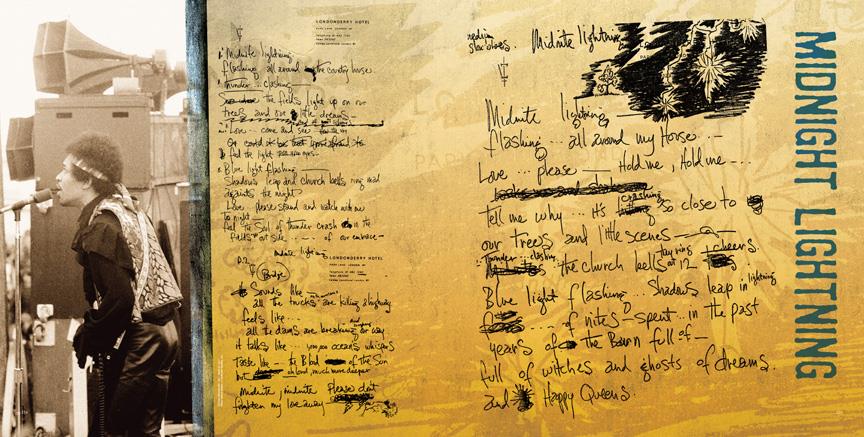 LONDONDERRY HOTEL
Midnite lightning
flashing all around the country house
Thunder ... clashing
the fields light up on our
trees and our little dreams
Love - come and see
feel the light
Blue light flashing
Shadows leap and church bells ring mad
against the night
Love please stand and watch with me
to night
feel the Soul of thunder crash in the
fields out side ... of our embrace -
midnite lightning
P.2
LONDONDERRY HOTEL
(Bridge)
Sounds like
all the trucks are killing a highway
feels like ...
all the dams are breaking
it talks like ... oceans whispers
Taste like - the Blood of the Sun
but much more deeper
Midnite, midnite Please dont
frighten my love away -
medium slow blues.
Midnite lightning
Midnite lightning
flashing ... all around my House -
Love ... please - Hold me, Hold me ---
tell me why ... it's crashing so close to
our trees and little scenes
Thunder clashing the church bells they ring at 12 cheers.
Blue light flashing ... Shadows leap in lightning
... of nites - spent .. in the past
years of the Barn full of -
full of witches and ghosts of dreams.
and Happy Queens.
MIDNIGHT LIGHTNING